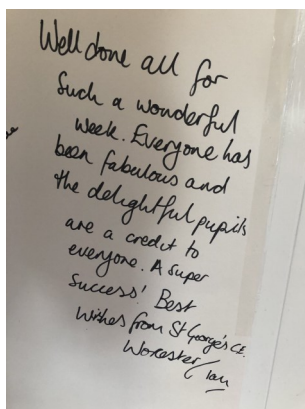 Well done all for
Such a wonderful
week. Everyone has
been fabulous and
the delightful pupils
are a credit to
everyone. A super
success! Best
Wishes from St George's CE.
Worcester/Ian